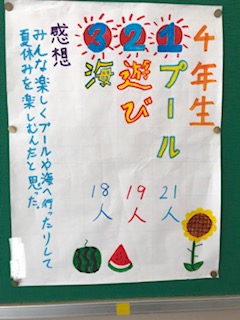 4年生
1プール
21人
2遊び
19人
3海
18人
感想
みんな楽しくプールや海へ行ったりして
夏休みを楽しむんだと思った。